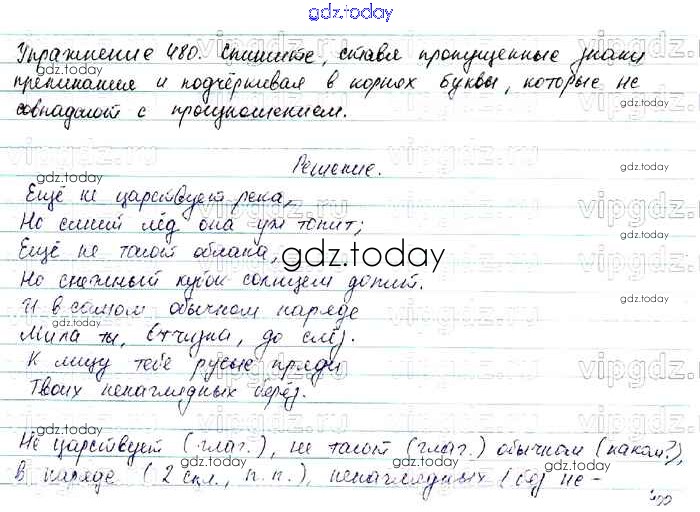 gdz.today
Упражнение 480. Спишите, ставя пропущенные знаки
препинания и подчёркивая в корнях буквы, которые не
совпадают с произношением.
Решение.
Ещё не царствует река,
Но синий лёд она уж топит;
Ещё не тают облака,
Но снежный кубок солнцем допит.
И в самом обычном наряде
Мила ты, Отчизна, до слёз.
К лицу тебе русые пряди
Твоих ненаглядных берёз.
Не царствует (глаг.), не тают (глаг.) обычном (каком?),
в наряде (2 скл., п.п.), ненаглядных (без не-